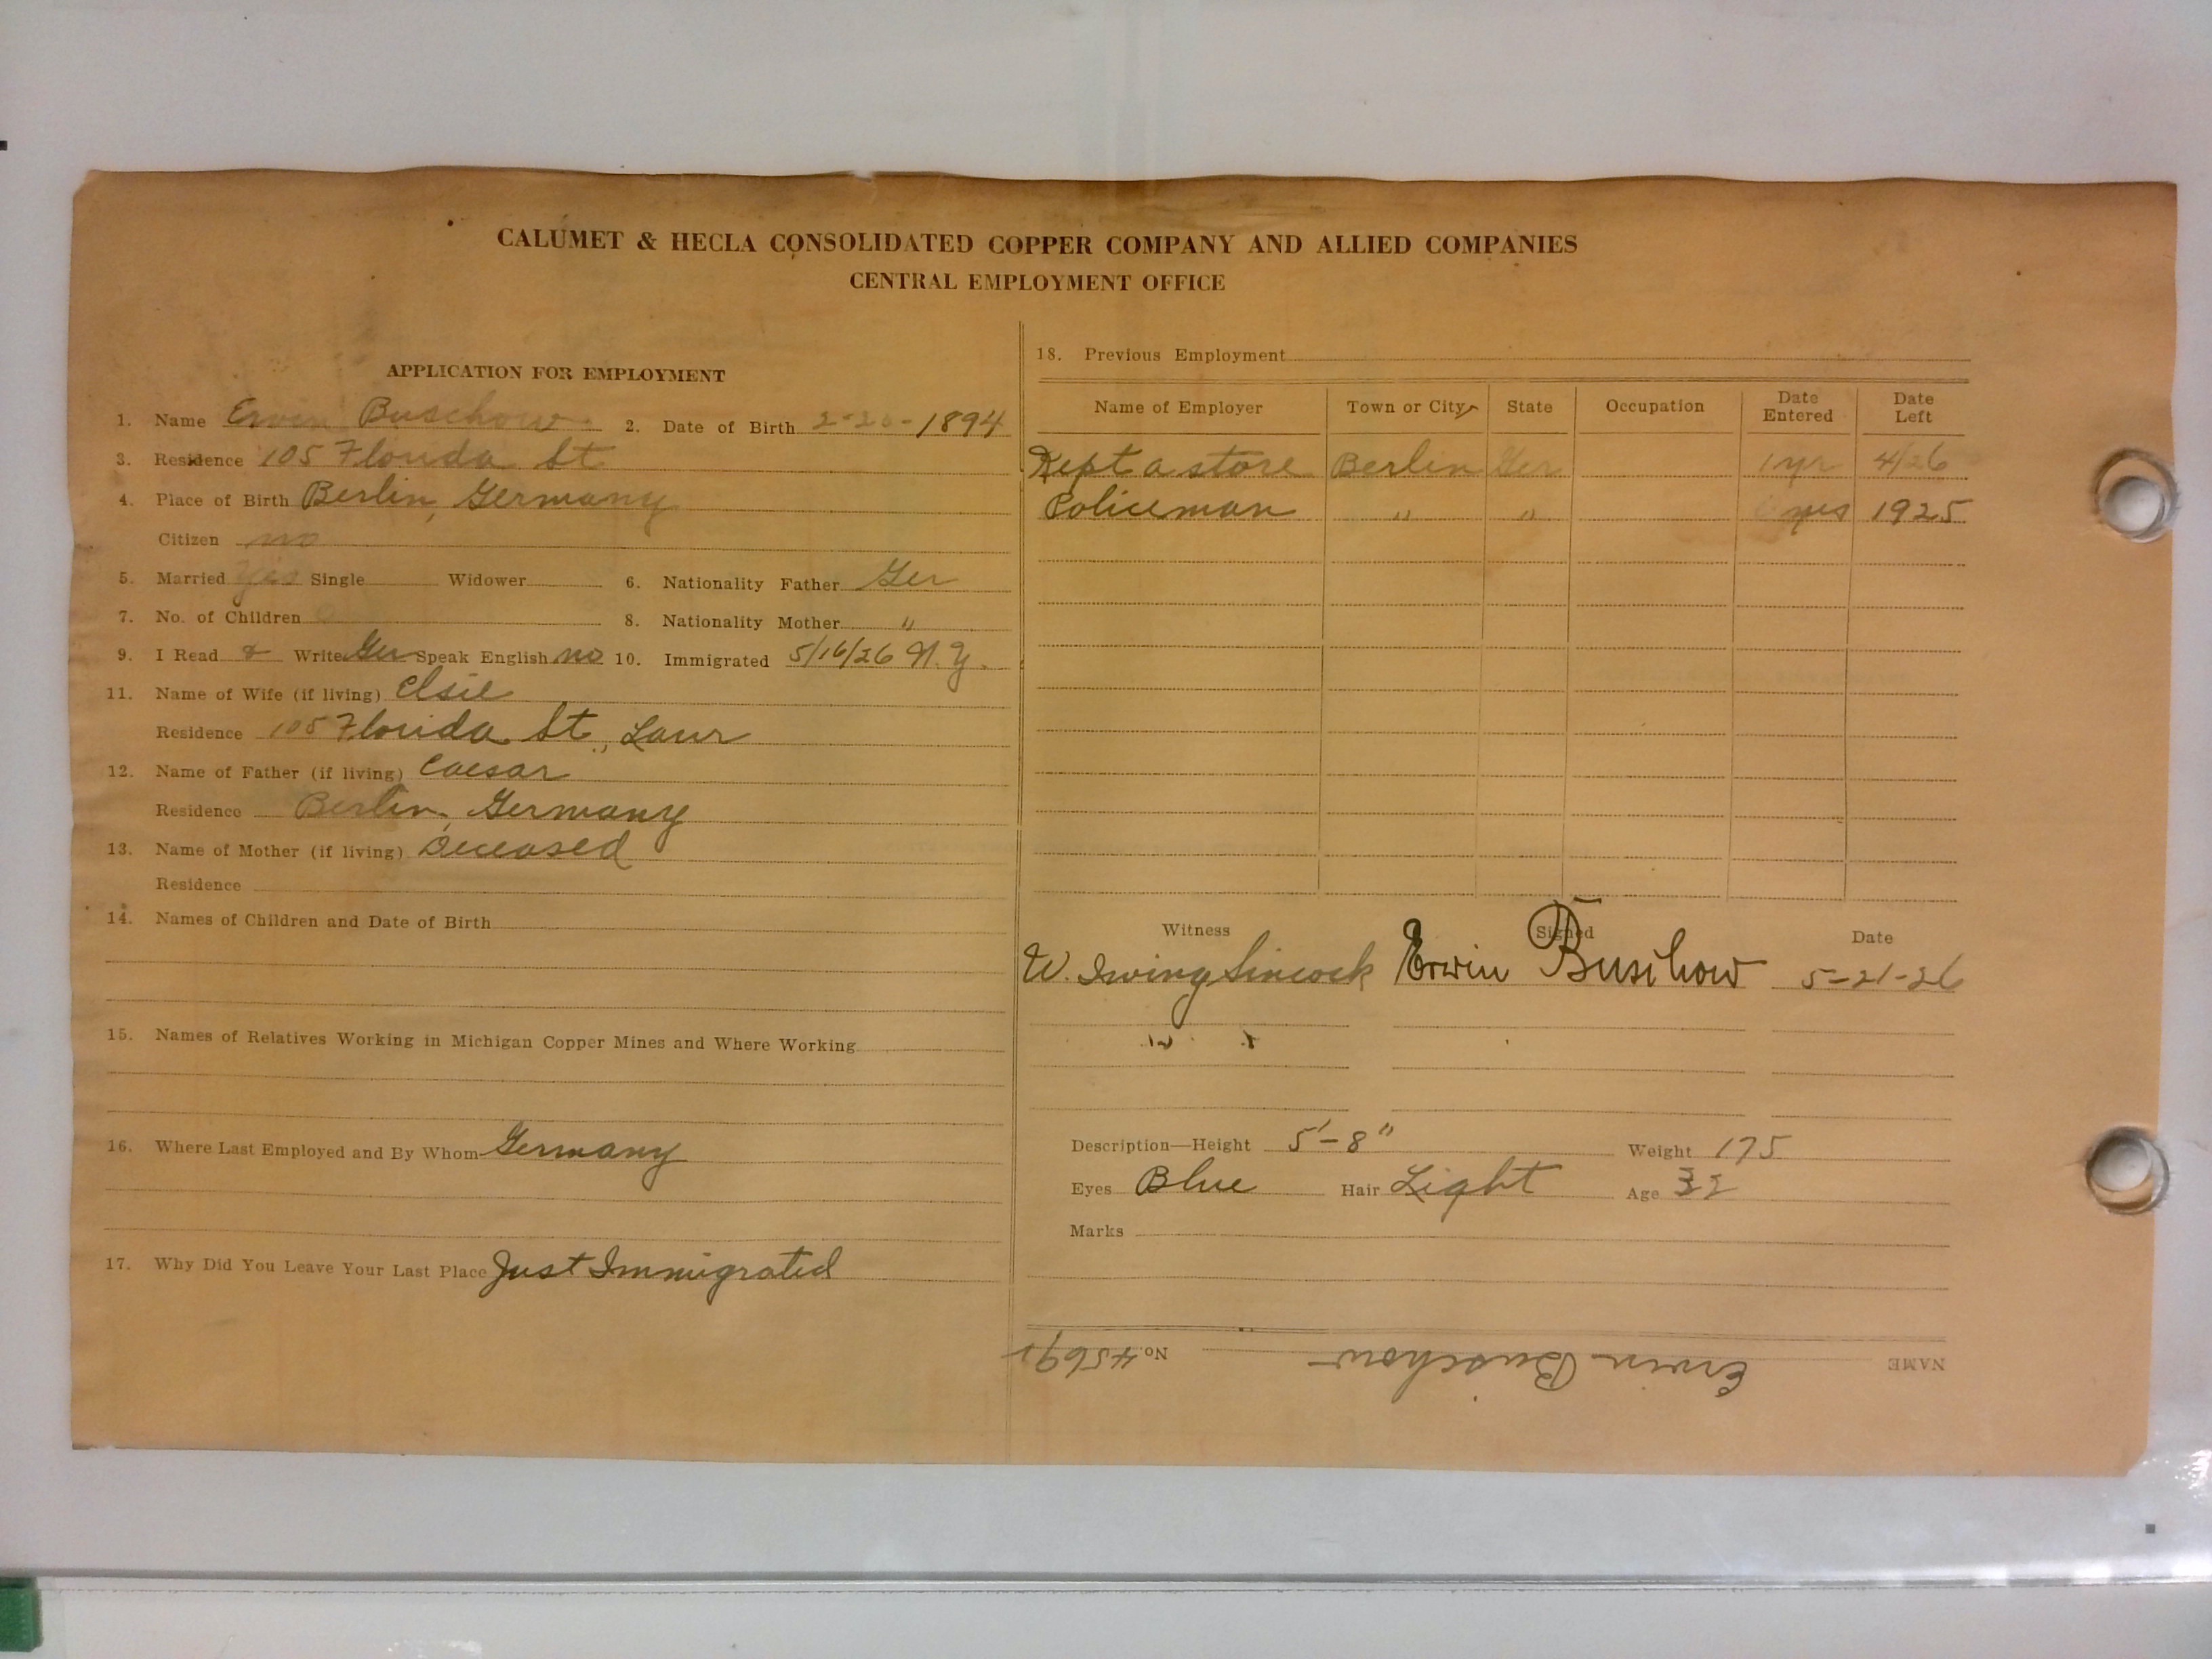 CALUMET & HECLA CONSOLIDATED COPPER COMPANY AND ALLIED COMPANIES
CENTRAL EMPLOYMENT OFFICE
APPLICATION FOR EMPLOYMENT
1. Name Erwin Buschow 2. Date of Birth 2-20-1894
3. Residence 105 Florida St
4. Place of Birth Berlin, Germany
Citizen no
5. Married Yes Single Widower 6. Nationality Father Ger
7. No. of Children 0 8. Nationality Mother "
9. I Read & Write Ger Speak English no 10. Immigrated 5/16/26 N.Y.
11. Name of Wife (if living) Elsie
Residence 105 Florida St., Laur
12. Name of Father (if living) Caesar
Residence Berlin, Germany
13. Name of Mother (if living) Deceased
Residence
14. Names of Children and Date of Birth
15. Names of Relatives Working in Michigan Copper Mines and Where Working
16. Where Last Employed and By Whom Germany
17. Why Did You Leave Your Last Place Just Immigrated
18. Previous Employment
Name of Employer Town or City State Occupation Date Entered Date Left
Kept a store Berlin Ger 1 yr 4/26
Policeman " " yrs 1925
Witness Signed Date
W. Irving Sincock Erwin Buschow 5-21-26
Description—Height 5'-8" Weight 175
Eyes Blue Hair Light Age 32
Marks
NAME Erwin Buschow No.